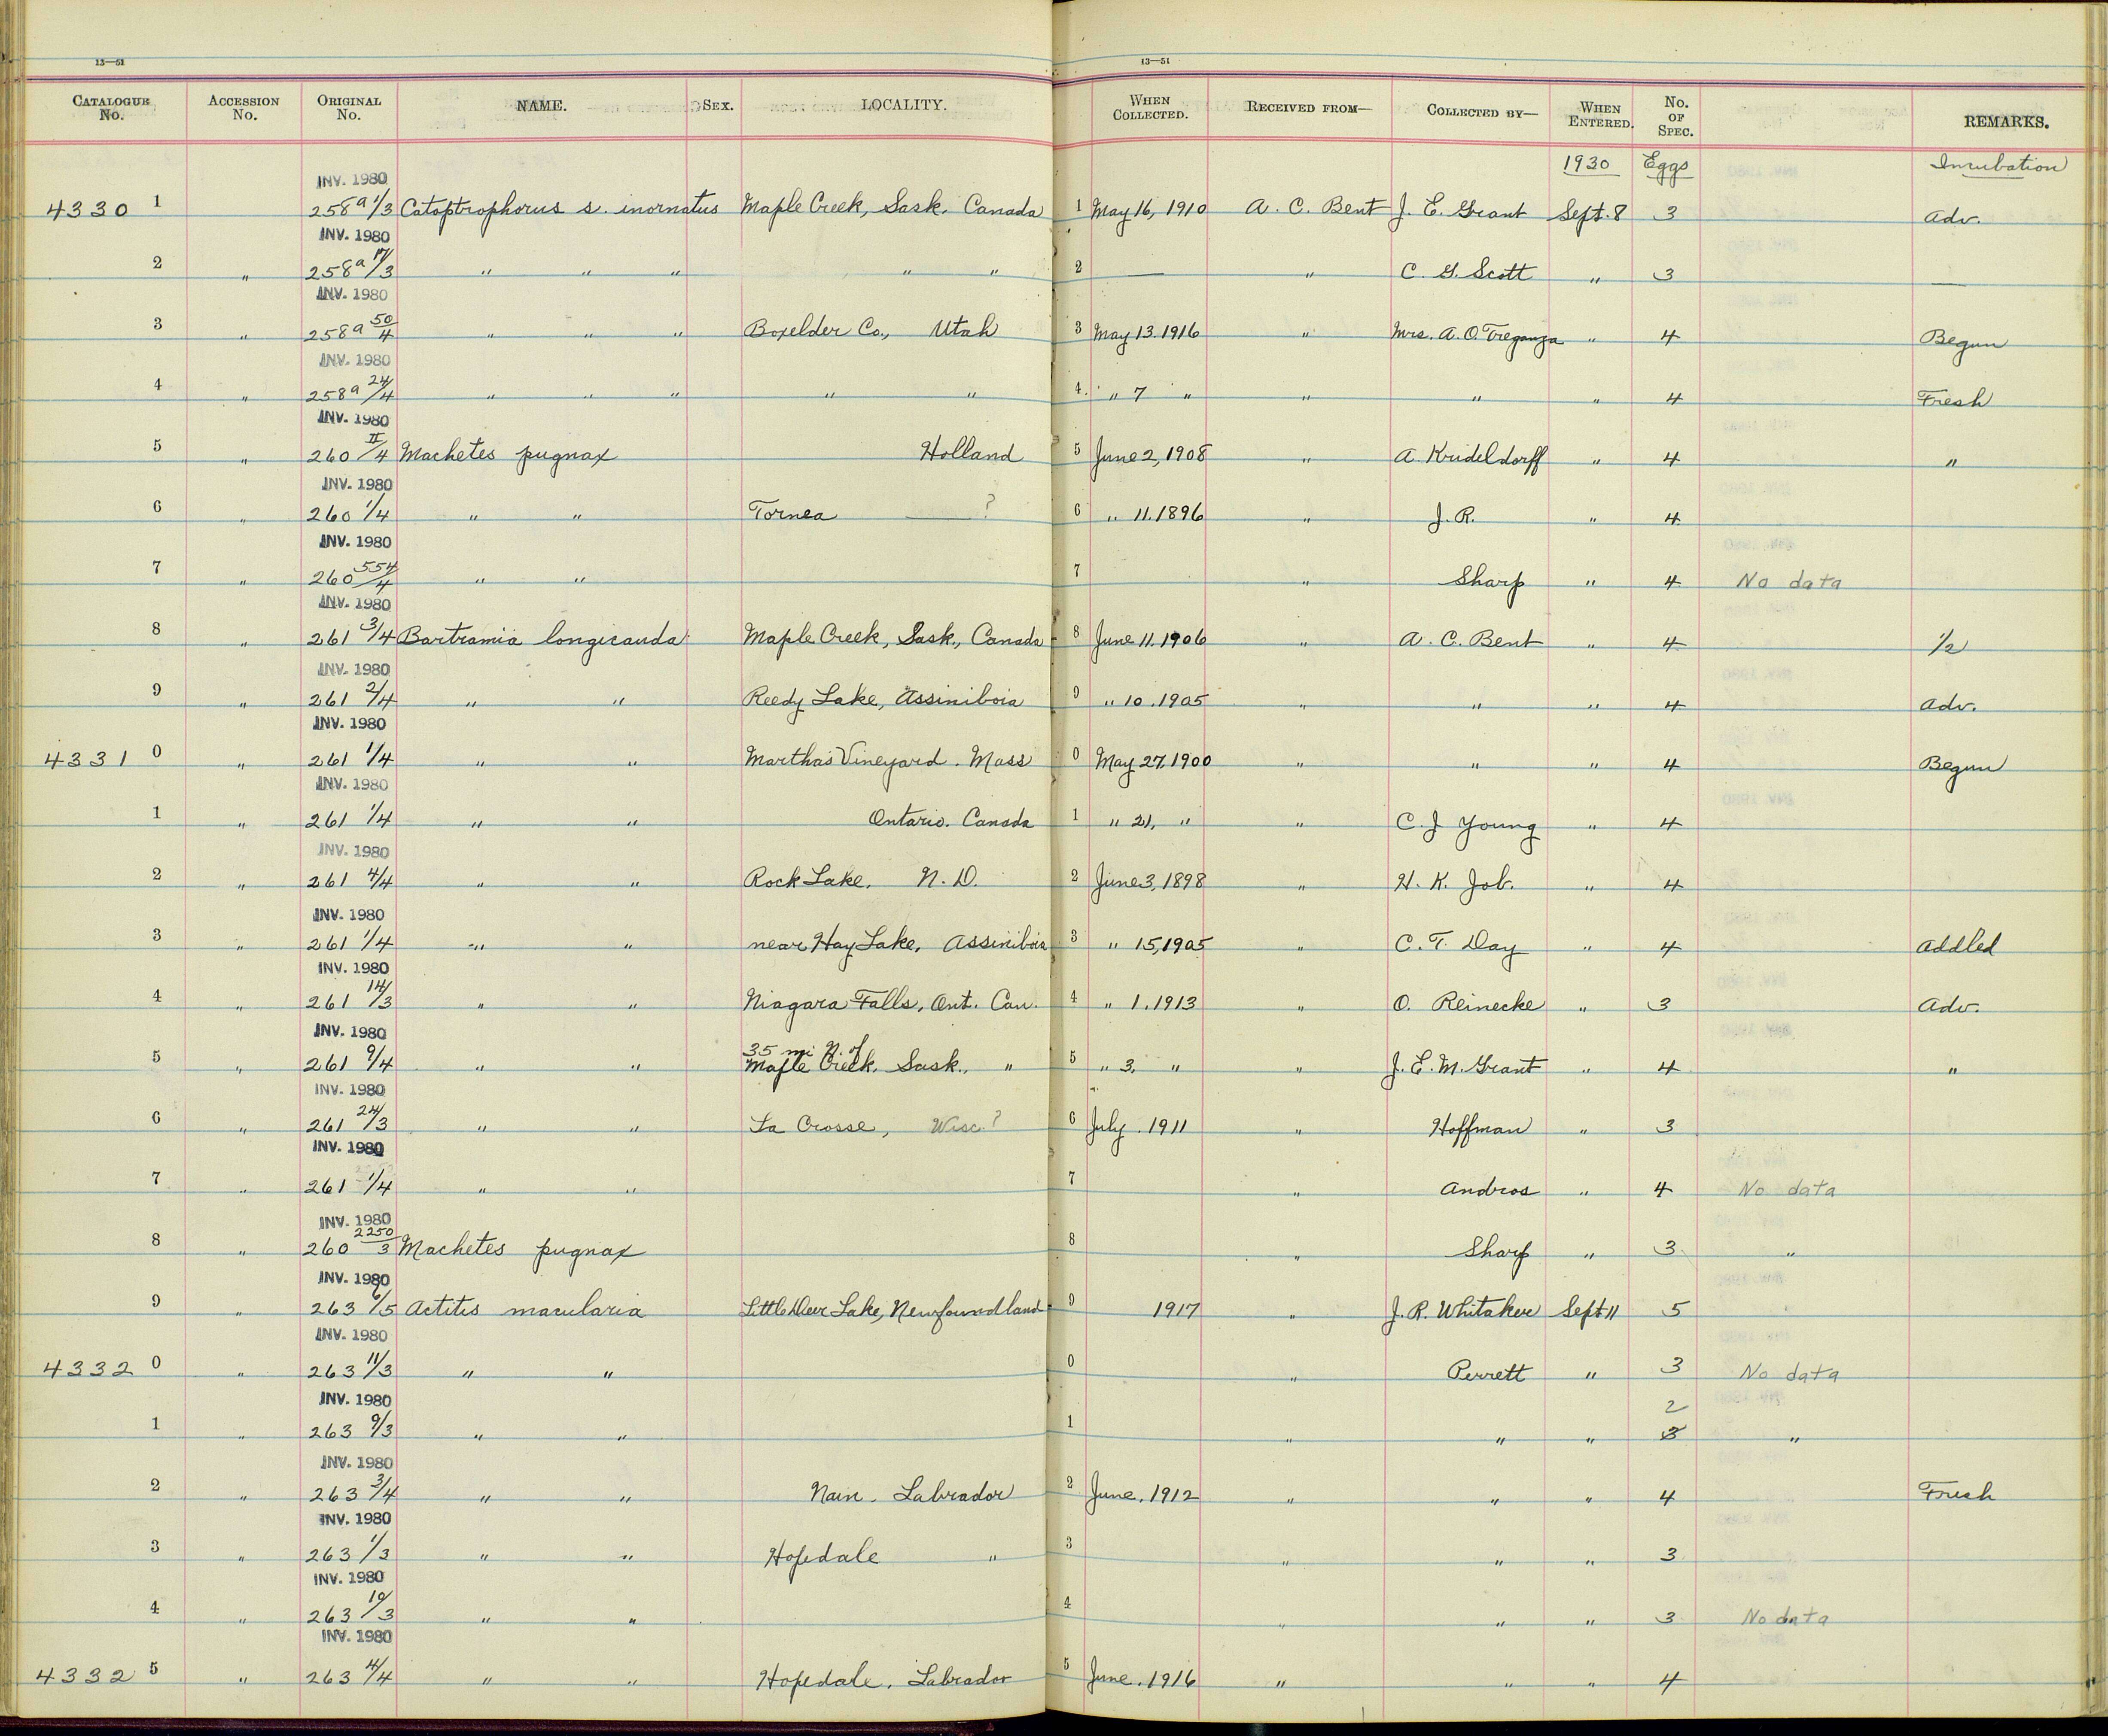 13—51 13—51
CATALOGUE No. ACCESSION No. ORIGINAL No. NAME. SEX. LOCALITY. WHEN COLLECTED. RECEIVED FROM— COLLECTED BY— WHEN ENTERED. No. OF SPEC. REMARKS.
1930 Eggs Incubation
INV. 1980
4330 1 258a 1/3 Catoptrophorus s. inornatus Maple Creek, Sask. Canada 1 May 16, 1910 A. C. Bent J. E. Grant Sept. 8 3 Adv.
INV. 1980
2 " 258a 17/3 " " " " " 2 — " C. G. Scott " 3 —
INV. 1980
3 " 258a 50/4 " " " Boxelder Co., Utah 3 May 13. 1916 " Mrs. A. O. Treganza " 4 Begun
INV. 1980
4 " 258a 24/4 " " " " " 4 " 7 " " " " 4 Fresh
INV. 1980
5 " 260 II/4 Machetes pugnax Holland 5 June 2, 1908 " A. Krideldorff " 4 "
INV. 1980
6 " 260 1/4 " " Tornea — ? 6 " 11. 1896 " J. R. " 4
INV. 1980
7 " 260 554/4 " " 7 " Sharp " 4 No data
INV. 1980
8 " 261 3/4 Bartramia longicauda Maple Creek, Sask., Canada 8 June 11. 1906 " A. C. Bent " 4 1/2
INV. 1980
9 " 261 2/4 " " Reedy Lake, Assiniboia 9 " 10. 1905 " " " 4 Adv.
INV. 1980
4331 0 " 261 1/4 " " Martha's Vineyard. Mass 0 May 27, 1900 " " " 4 Begun
INV. 1980
1 " 261 1/4 " " Ontario. Canada 1 " 21, " " C. J Young " 4
INV. 1980
2 " 261 4/4 " " Rock Lake, N. D. 2 June 3, 1898 " H. K. Job. " 4
INV. 1980
3 " 261 1/4 " " near Hay Lake, Assiniboia 3 " 15, 1905 " C. T. Day " 4 Addled
INV. 1980
4 " 261 14/3 " " Niagara Falls, Ont. Can. 4 " 1. 1913 " O. Reinecke " 3 Adv.
INV. 1980
35 mi N. of
5 " 261 9/4 " " Maple Creek, Sask., " 5 " 3, " " J. E. M. Grant " 4 "
INV. 1980
6 " 261 24/3 " " La Crosse, Wisc.? 6 July. 1911 " Hoffman " 3
INV. 1980
7 " 261 1/4 " " 7 " Andros " 4 No data
INV. 1980
8 " 260 2250/3 Machetes pugnax 8 " Sharp " 3 "
INV. 1980
9 " 263 6/5 Actitis macularia Little Deer Lake, Newfoundland 9 1917 " J. R. Whitaker Sept 11 5
INV. 1980
4332 0 " 263 11/3 " " 0 " Perrett " 3 No data
INV. 1980 2
1 " 263 9/3 " " 1 " " " 3 "
INV. 1980
2 " 263 3/4 " " Nain. Labrador 2 June. 1912 " " " 4 Fresh
INV. 1980
3 " 263 1/3 " " Hopedale " 3 " " " 3
INV. 1980
4 " 263 10/3 " " 4 " " " 3 No data
INV. 1980
4332 5 " 263 4/4 " " Hopedale, Labrador 5 June. 1916 " " " 4